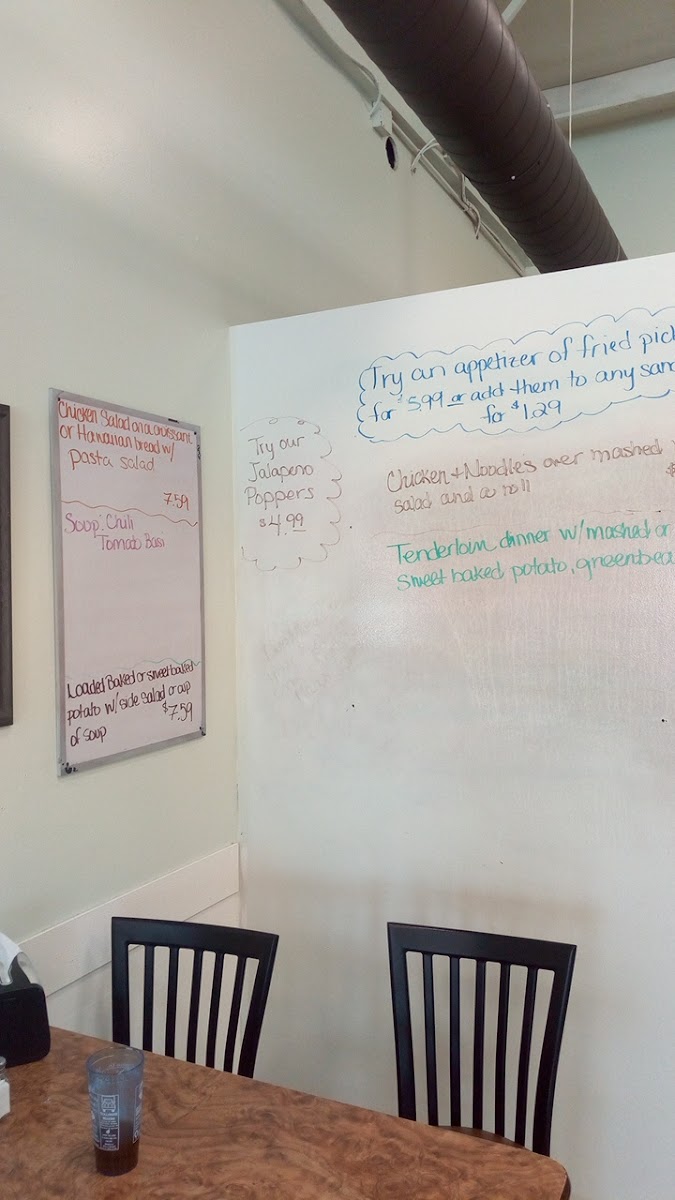 Chicken Salad on a croissant
or Hawaiian bread w/
pasta salad
7.59
Soup: Chili
Tomato Basil
Loaded Baked or sweet baked
potato w/ side salad or cup
of soup
$7.59
Try our
Jalapeno
Poppers
$4.99
Try an appetizer of fried
for $5.99 or add them to any
for $1.29
Chicken + Noodles over mashed
salad and a roll
Tenderloin dinner w/ mashed or
Sweet baked potato,